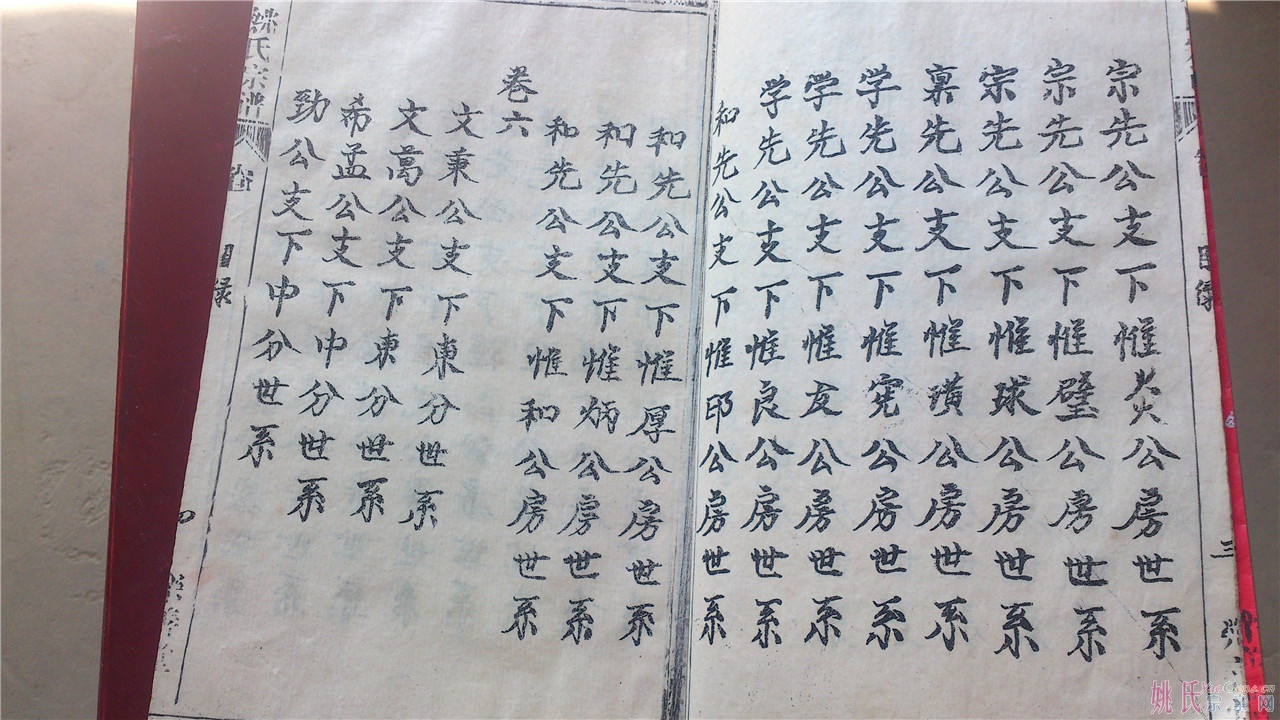 宗先公支下惟炎公房世系
宗先公支下惟璧公房世系
宗先公支下惟球公房世系
禀先公支下惟璜公房世系
学先公支下惟宪公房世系
学先公支下惟友公房世系
学先公支下惟良公房世系
和先公支下惟邛公房世系
目录
三
和先公支下惟厚公房世系
和先公支下惟炳公房世系
和先公支下惟和公房世系
卷六
文秉公支下東分世系
文萬公支下東分世系
希孟公支下中分世系
勁公支下中分世系
姚氏宗谱
卷首
目录
四
姚氏宗亲网